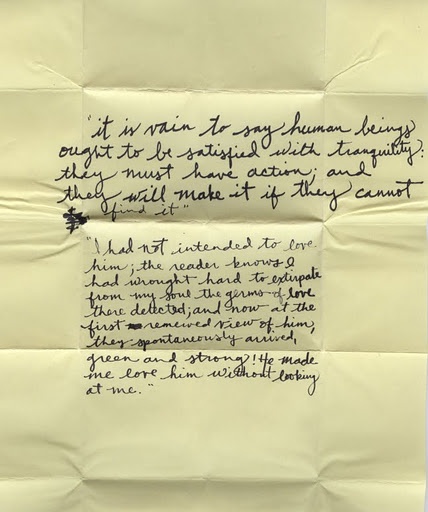 "it is vain to say human beings
ought to be satisfied with tranquility:
they must have action; and
they will make it if they cannot
find it"
"I had not intended to love
him; the reader knows I
had wrought hard to extirpate
from my soul the germs of love
there detected; and now at the
first renewed view of him,
they spontaneously arrived,
green and strong! He made
me love him without looking
at me."